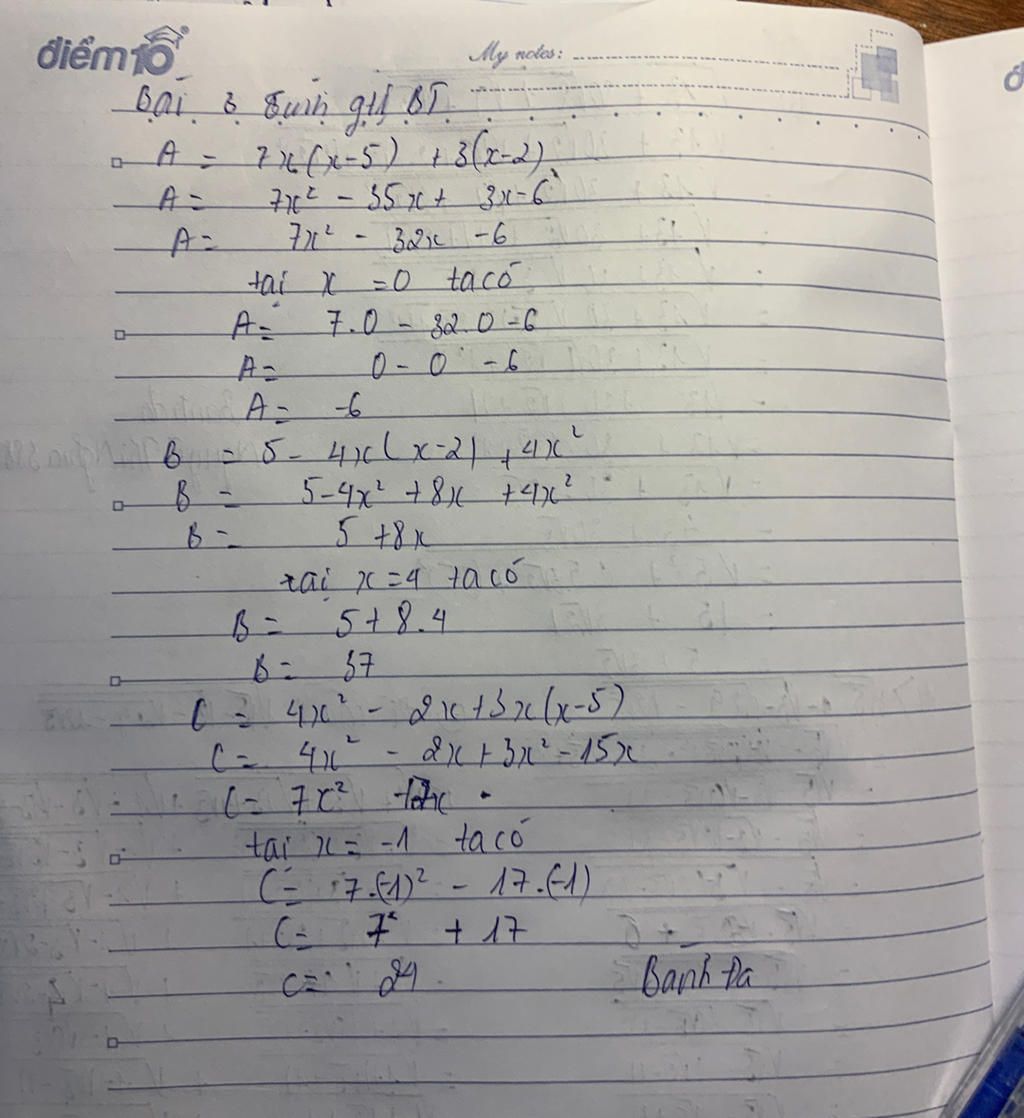 điểm10
My notes:
Bài 3 tính gtị BT
A = 7x(x-5) + 3(x-2)
A = 7x² - 35x + 3x-6
A = 7x² - 32x -6
tại x = 0 ta có
A = 7.0 - 32.0 -6
A = 0 - 0 - 6
A = -6
B = 5 - 4x(x-2) + 4x²
B = 5-4x² + 8x + 4x²
B = 5 + 8x
tại x = 4 ta có
B = 5 + 8.4
B = 37
C = 4x² - 2x + 3x(x-5)
C = 4x² - 2x + 3x² - 15x
C = 7x²
tại x = -1 ta có
C = 7.(-1)² - 17.(-1)
C = 7 + 17
C = 24
Banh Đa